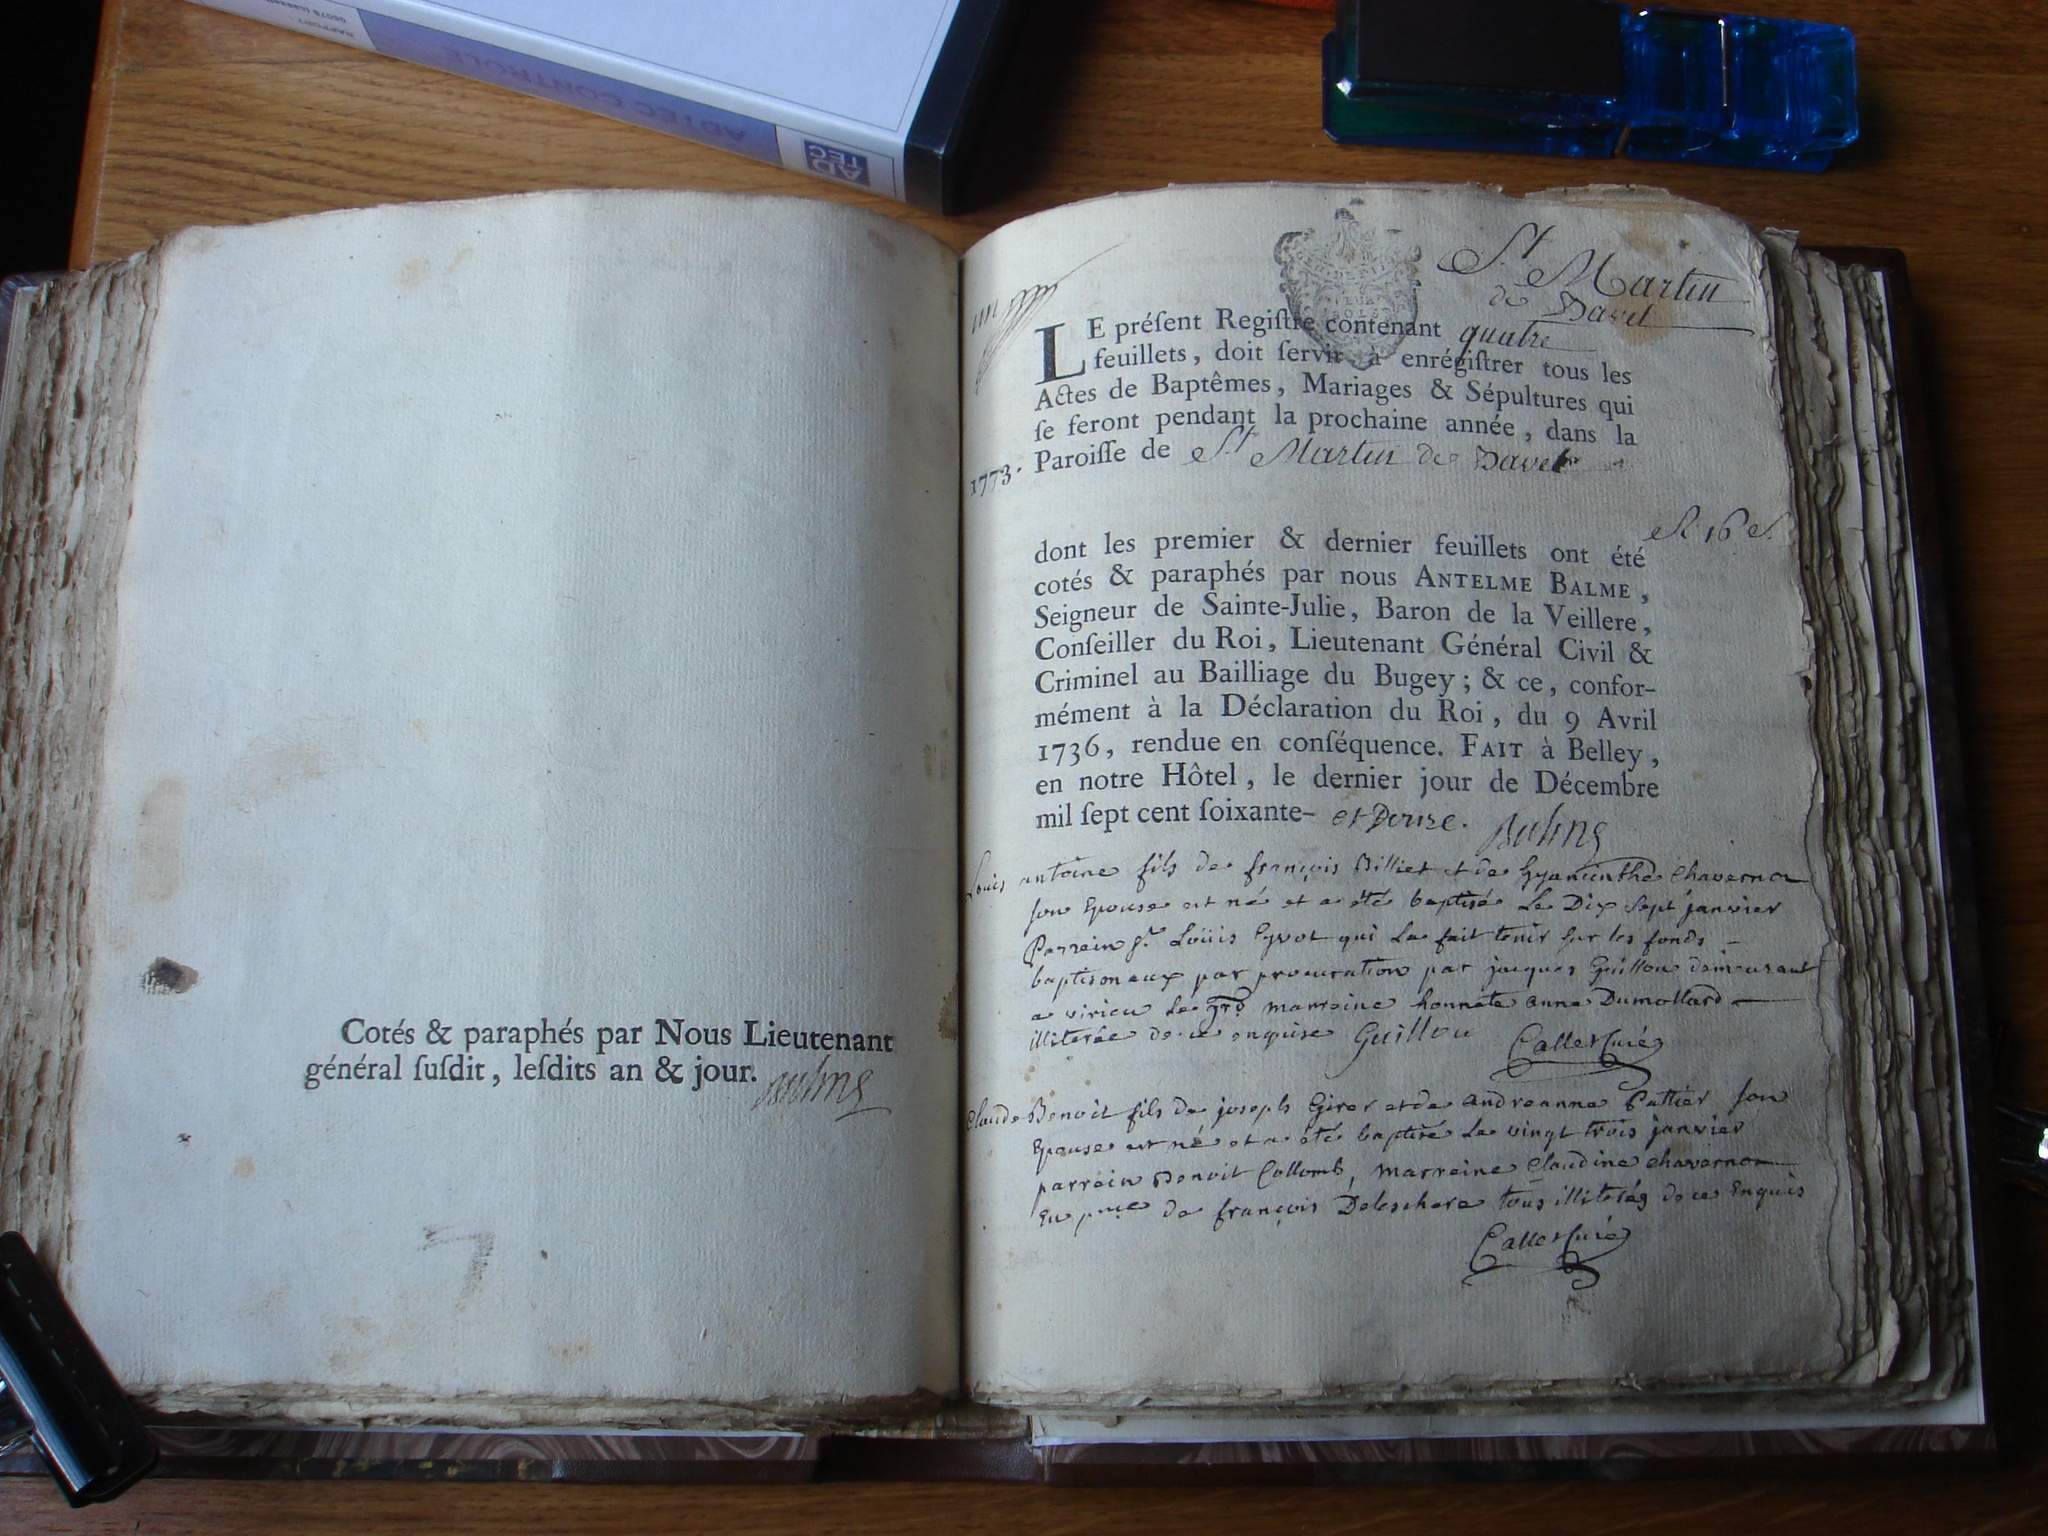 ADTEC CONTROLE
AD
TEC
Cotés & paraphés par Nous Lieutenant
général ſuſdit, leſdits an & jour.
St Martin
de Davet
un
LE préſent Regiſtre contenant quatre
feuillets, doit ſervir à enrégiſtrer tous les
Actes de Baptêmes, Mariages & Sépultures qui
ſe feront pendant la prochaine année, dans la
1773. Paroiſſe de St Martin de Davet
dont les premier & dernier feuillets ont été
cotés & paraphés par nous ANTELME BALME,
Seigneur de Sainte-Julie, Baron de la Veillere,
Conſeiller du Roi, Lieutenant Général Civil &
Criminel au Bailliage du Bugey; & ce, confor-
mément à la Déclaration du Roi, du 9 Avril
1736, rendue en conſéquence. FAIT à Belley,
en notre Hôtel, le dernier jour de Décembre
mil ſept cent ſoixante- et Douze.
Louis antoine fils de françois Billiet et de hyacinthe Chavernon
son Epouse est né et a été baptisé Le Dix sept janvier
Parrein sr Loüis Eyvot qui La fait tenir sur les fonds
baptismeaux par procuration par jacques Guillou demeurant
a virieu Le grd marreine honnete anne Dumollard
illiterée de ce enquise Guillou Callet Curé
Claude Benoit fils de joseph Girer et de andreanne Pattier son
Epouse est né et a été baptisé Le vingt trois janvier
parrein Benoit Collomb, marreine Claudine Chavernon
En pnce de françois Deleschere tous illiterés de ce Enquis
Callet Curé